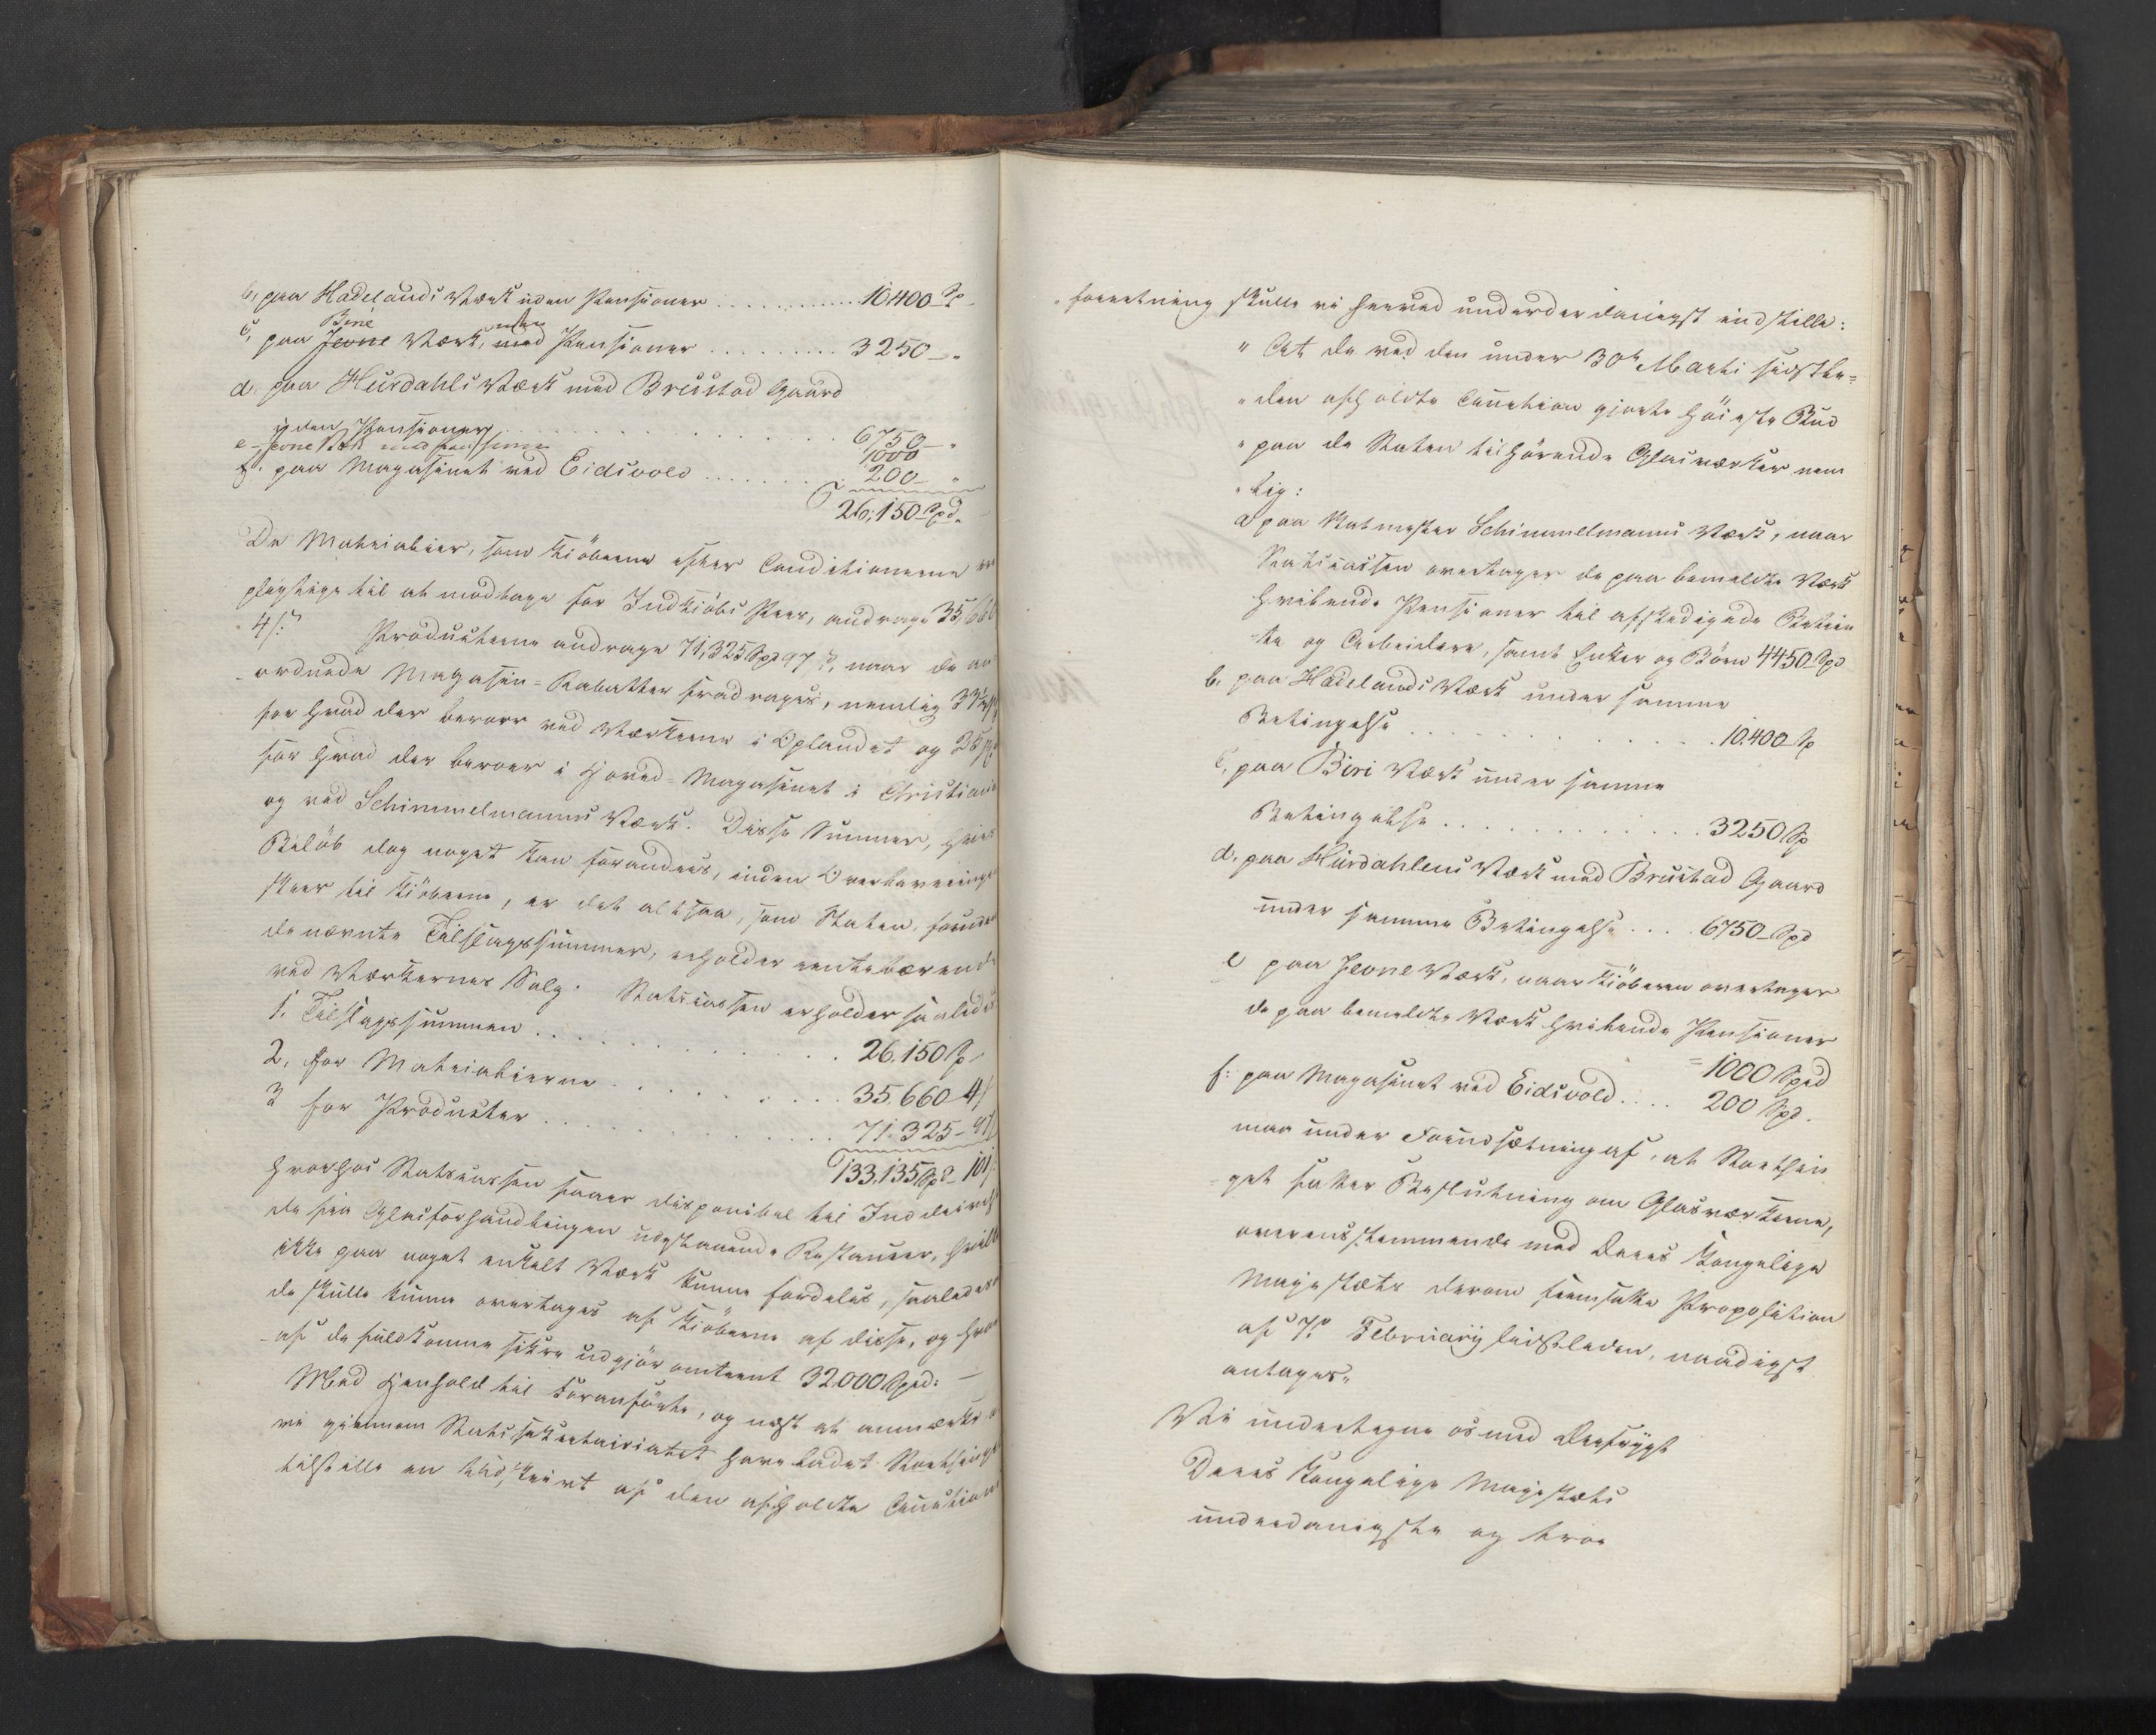 b, paa Hadelands Værk uden Pensioner . . . . . . . . 10,400 Sp
Birie uden
c, paa Jevne Værk, med Pensioner . . . . . . . . . 3250 — "
d. paa Hurdahls Værk med Brustad Gaard
uden Pensioner . . . . . . . . . . . 6750 — "
e – Jevne Værk med Pensioner 1000
f. paa Magasinet ved Eidsvold . . . . . . . 200 — "
26,150 Spd.
De Materialier, som Kiøberne efter Conditionerne ere
pligtige til at modtage for Indkiøbs Priis, andrage 35,660
4 s. Producterne andrage 71,325 Spd 97 s, naar de an-
ordnede Magasin-Rabatter fradrages, nemlig 33⅓
for hvad der beroer ved Værkerne i Oplandet og 25 p
for hvad der beroer i Hoved-Magasinet i Christiania
og ved Schimmelmanns Værk. Disse Summer, hvis
Beløb dog noget kan forandres, inden Overleveringen
skeer til Kiøberne, er det altsaa, som Staten, foruden
de nævnte Tilslagssummer, erholder rentebærende
ved Værkernes Salg. Statscassen erholder saaledes
1. Tilslagssummen . . . . . . . . . . 26,150 Sp
2. for Materialierne . . . . . . . . 35,660 4 s
3 for Producter . . . . . . . . . . 71,325 – 97
133,135 Spd – 101
hvorhos Statscassen faaer disponibel til Inddrivelse
de fra Glasforhandlingen udestaaende Restancer, hvilke
ikke paa noget enkelt Værk kunne fordeles, saaledes
de skulle kunne overtages af Kiøberne af disse, og hvor-
af de fuldkomne sikre udgjør omtrent 32,000 Spd: —
Med Henhold til Foranførte, og næst at anmærke at
vi gjennem Statssekretariatet have ladet Storthinget
tilstille en Udskrivt af den afholdte Auctions
forretning skulle vi herved underdanigst indstille:
" At de ved den under 30te Marti sidstle=
" den afholdte Auction gjorte høieste Bud
" paa de Staten tilhørende Glasværker nem
" lig:
a paa Rotmester Schimmelmanns Værk, naar
Statscassen overtager de paa bemeldte Værk
hvilende Pensioner til afskedigede Betien
=te og Arbeidere, samt Enker og Børn 4450 Spd
b. paa Hadelands Værk under samme
Betingelse . . . . . . . . . . 10,400 Sp
c, paa Biri Værk under samme
Betingelse . . . . . . . . . . 3250 Sp
d, paa Hurdahlens Værk med Brustad Gaard
under samme Betingelse . . . . 6750 – Spd
e paa Jevne Værk, naar Kiøberen overtager
de paa bemeldte Værk hvilende Pensioner
= 1000 Spd
f: paa Magasinet ved Eidsvold . . . . 200 Spd.
maa under Forudsætning af, at Storthin
=get fatter Beslutning om Glasværkerne,
overensstemmende med Deres Kongelige
Majestæts derom fremsatte Proposition
af 7de February sidstleden, naadigst
antages„
Vi undertegne os med dybeste Frygt
Deres Kongelige Majestæts
underdanigste og troe